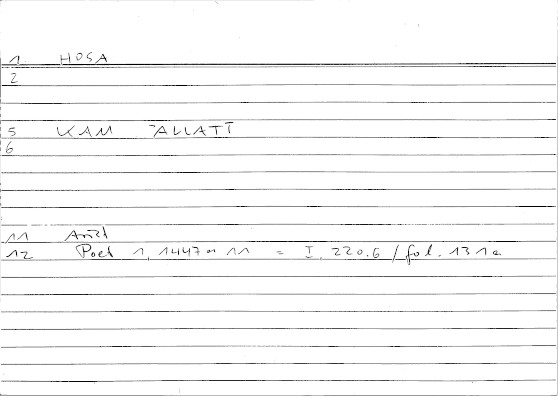 1 HOSA
2
5 KAM TALLATT
6
11 Arist
12 Poet 1, 1447a 11 = I. 220.6 / fol. 131a